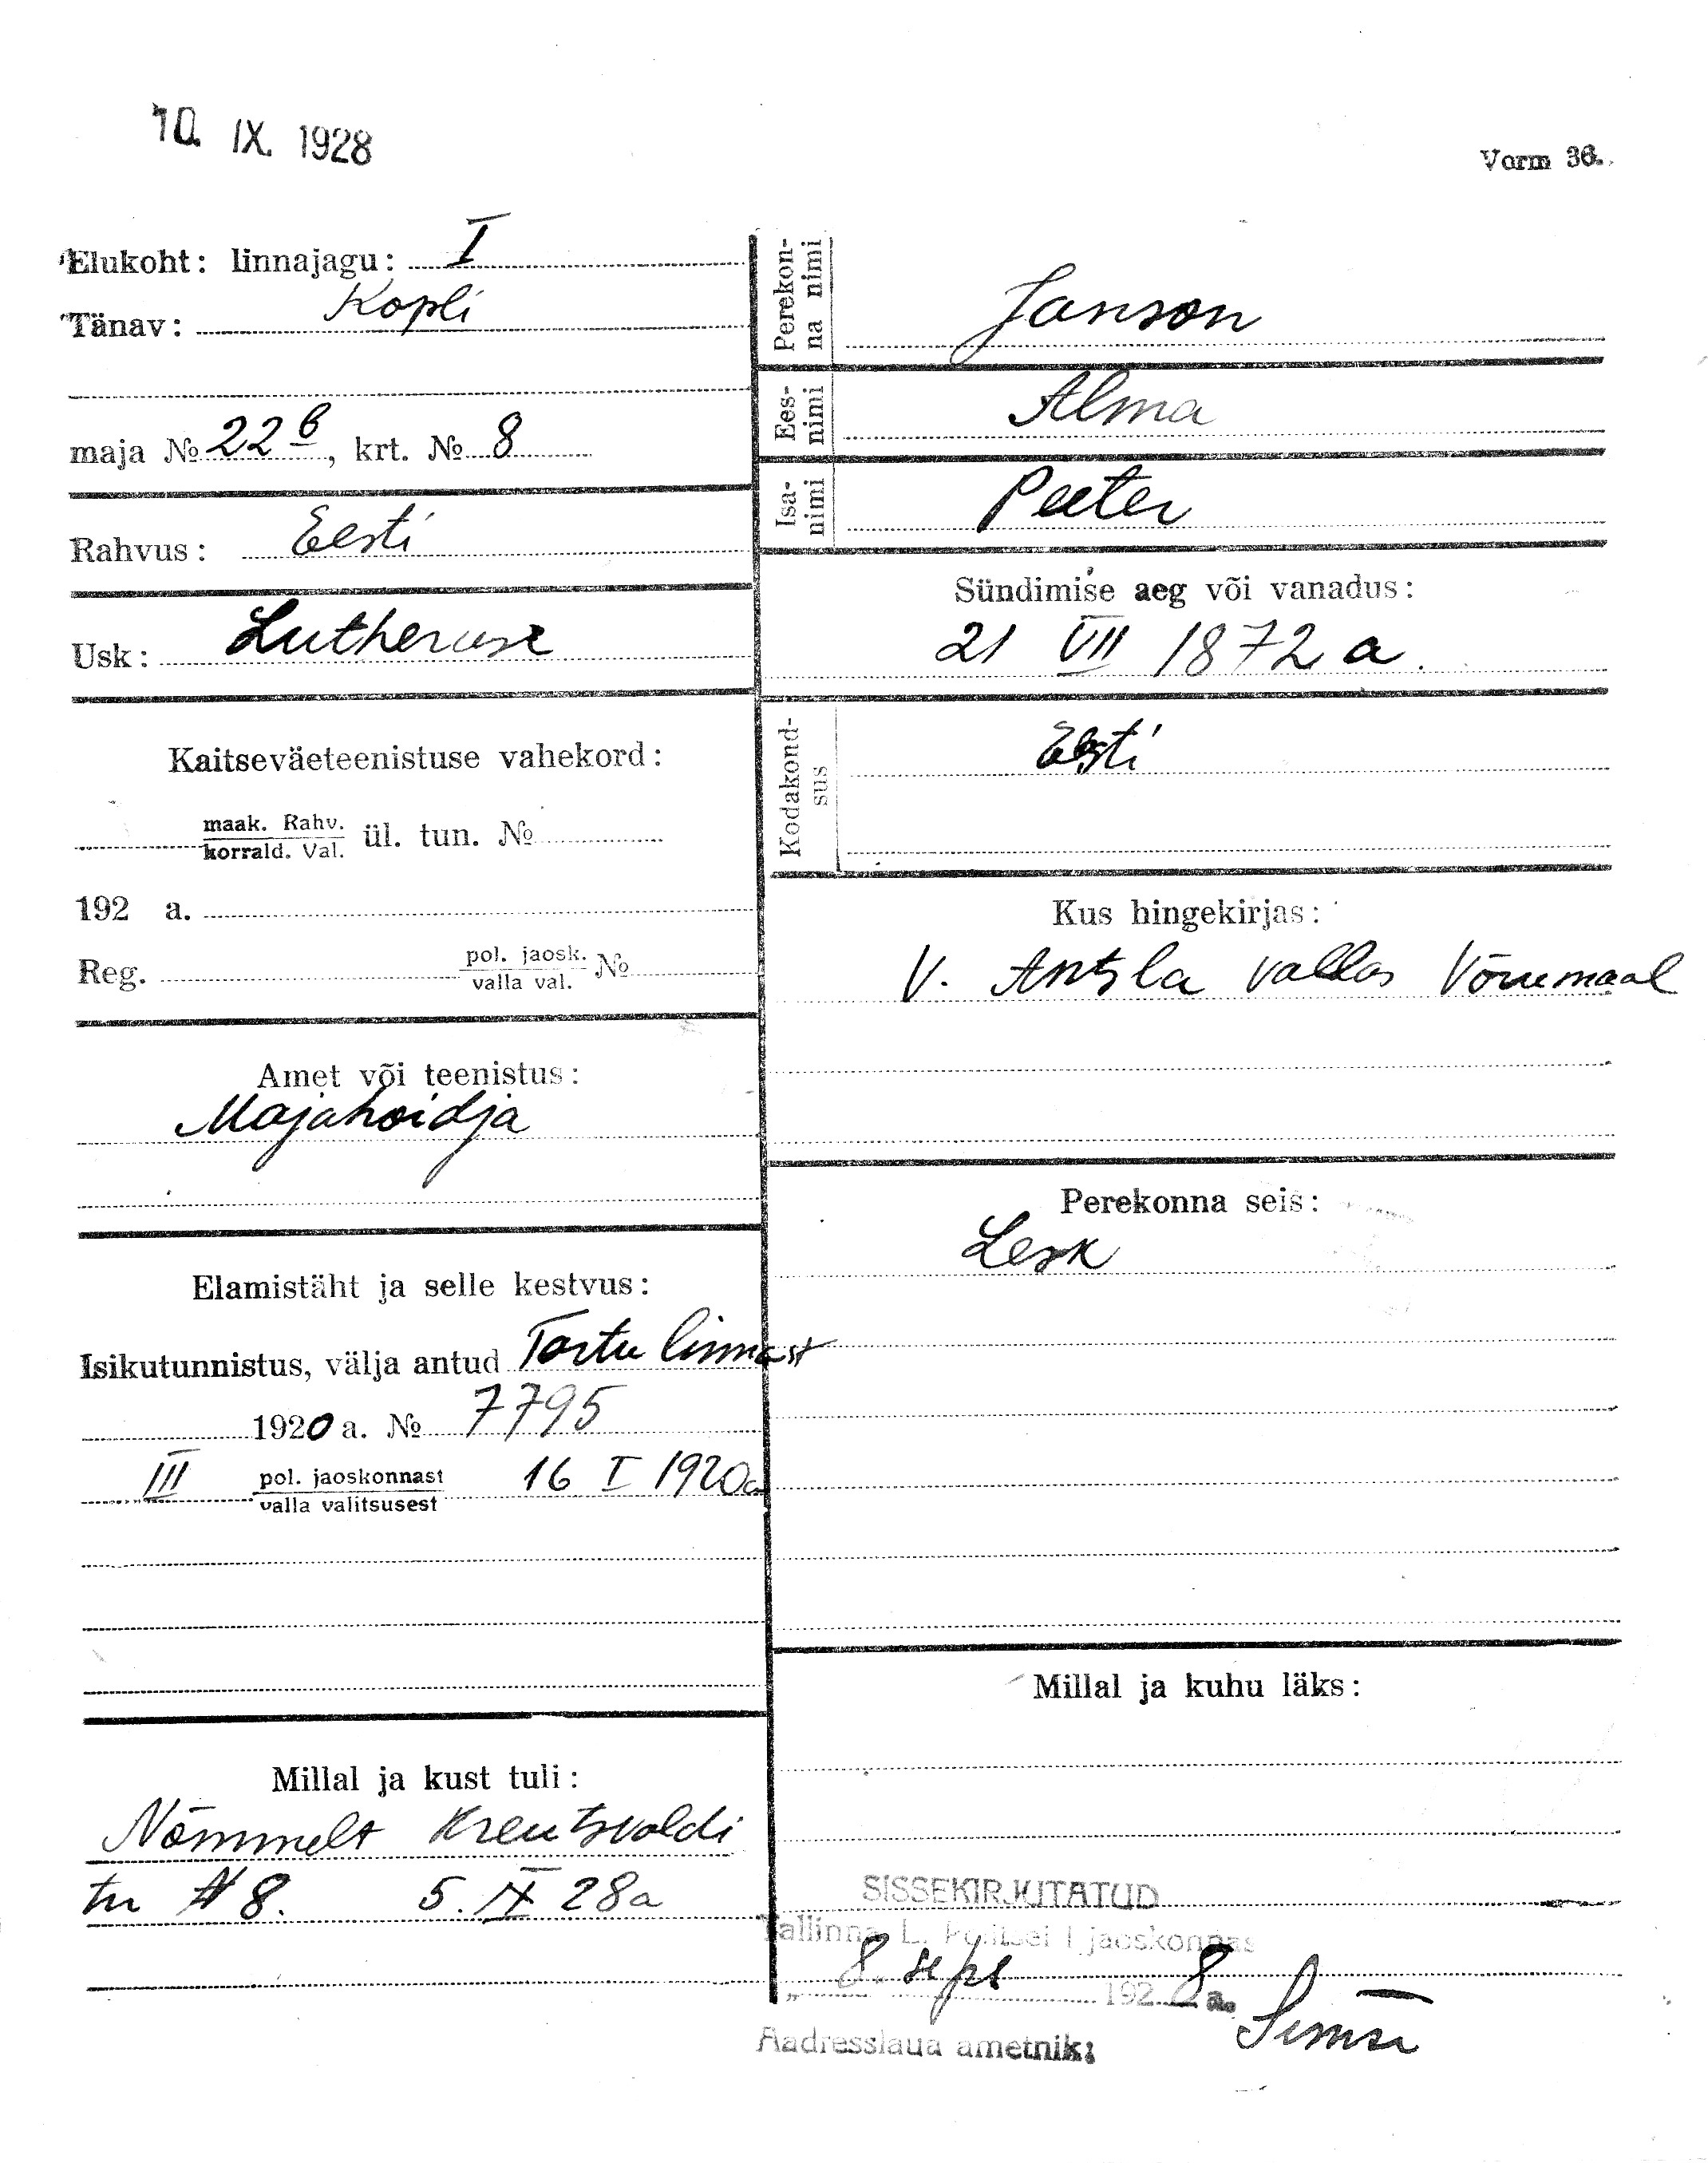 10. IX. 1928
Vorm 36.
Elukoht: linnajagu: I
Tänav: Kopli
maja № 22 b, krt. № 8
Rahvus: Eesti
Usk: Lutheruse
Kaitseväeteenistuse vahekord:
maak. Rahv.
korrald. Val. ül. tun. №
192 a.
Reg. pol. jaosk.
valla val. №
Amet või teenistus:
Majahoidja
Elamistäht ja selle kestvus:
Isikutunnistus, välja antud Tartu linnast
1920 a. № 7795
III pol. jaoskonnast 16 I 1920a
valla valitsusest
Millal ja kust tuli:
Nõmmelt Kreutsvaldi
tn № 8. 5. IX 28a
Perekon-
na nimi
Janson
Ees-
nimi
Alma
Isa-
nimi
Peeter
Sündimise aeg või vanadus:
21 VII 1872 a.
Kodakond-
sus
Eesti
Kus hingekirjas:
V. Antsla vallas Võrumaal
Perekonna seis:
Lesk
Millal ja kuhu läks:
SISSEKIRJUTATUD
Tallinna L. Politsei I jaoskonnas
8. sept 1928 a.
Aadresslaua ametnik: